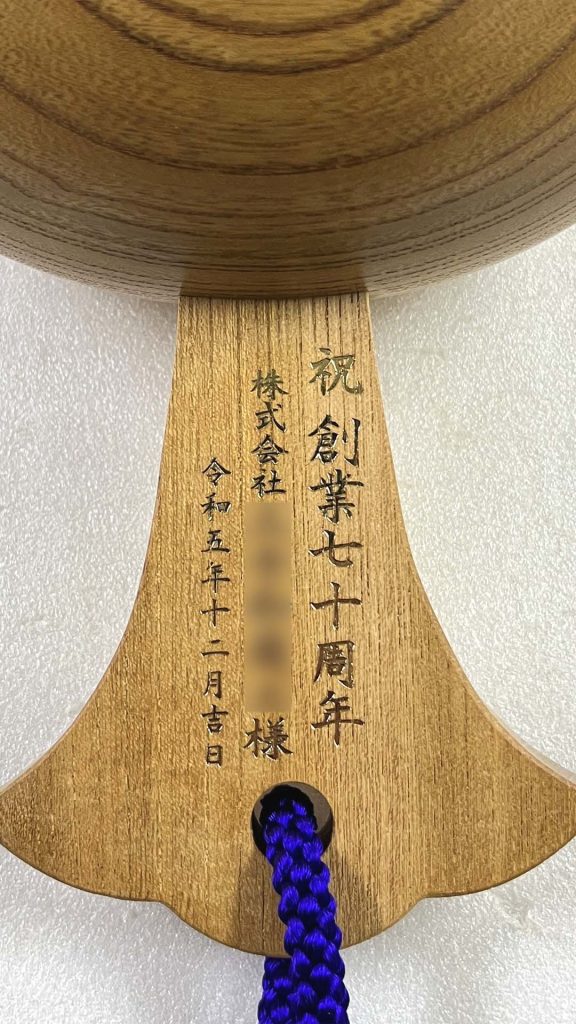 祝 創業七十周年
株式会社 様
令和五年十二月吉日